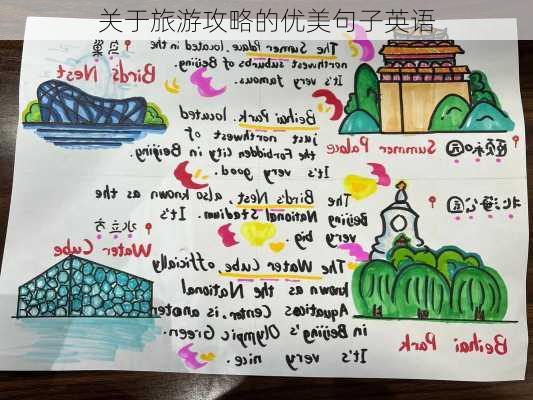 关于旅游攻略的优美句子英语
颐和园
Summer Palace
The Sumer Palace, located in the
northwest suburbs of Beijing.
It's very famous.
鸟巢
Bird's Nest
Beihai Park, located
just northwest of
the Forbidden City in Beijing.
It's very good.
北海公园
Beihai Park
The Bird's Nest, also known as the
Beijing National Stadium. It's
very big.
水立方
Water Cube
The Water Cube officially
known as the National
Aquatics Center, is
in Beijing's Olympic Green.
It's very nice.